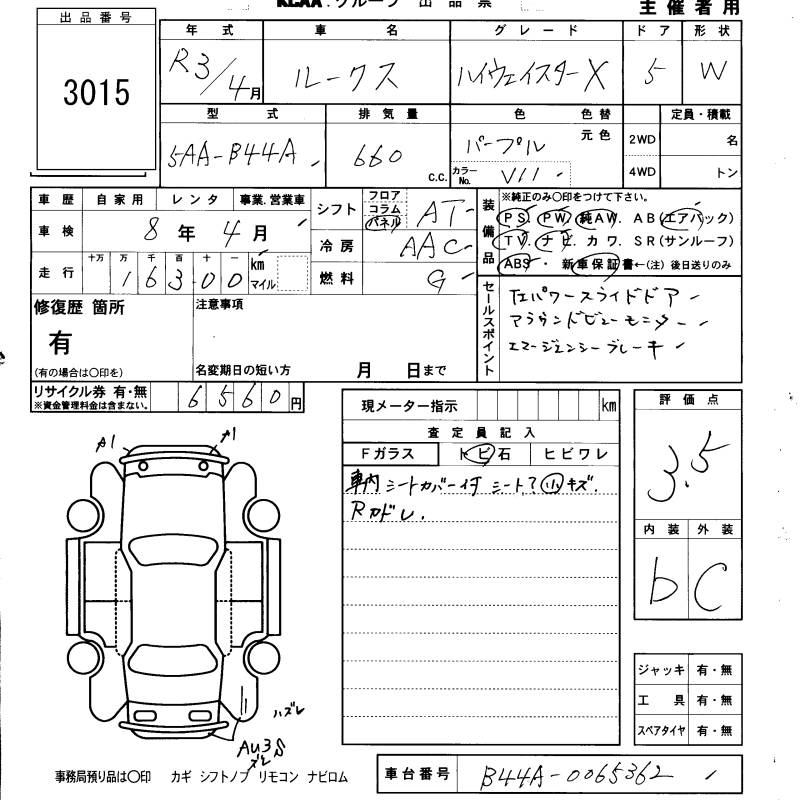 KCAA.グループ 出品票
主催者用
出品番号
3015
年式 車名 グレード ドア 形状
R3/4月 ルークス ハイウェイスターX 5 W
型式 排気量 色 色替 定員・積載
5AA-B44A 660 c.c. パープル 元色 2WD 名
カラーNo. V11 4WD トン
車歴 自家用 レンタ 事業.営業車
車検 8年4月
走行 十万 万 千 百 十 一
1 6 3 0 0 km マイル
シフト フロア コラム パネル AT
冷房 AAC
燃料 G
装備品 ※純正のみ○印をつけて下さい。
PS. PW. 純AW. AB(エアバック)
TV. ナビ. カワ. SR(サンルーフ)
ABS・ 新車保証書←(注) 後日送りのみ
修復歴 箇所
有
(有の場合は○印を)
注意事項
名変期日の短い方 月 日まで
セールスポイント
左パワースライドドア
アラウンドビューモニター
エマージェンシーブレーキ
リサイクル券 有・無 6560円
※資金管理料金は含まない。
現メーター指示 km
査定員記入
Fガラス トビ石 ヒビワレ
車内 シートカバー付 シート? 小 キズ.
Rカドレ.
評価点
3.5
内装 外装
b C
A1 A1
ハズレ
AU3S
ズレ
ジャッキ 有・無
工具 有・無
スペアタイヤ 有・無
事務局預り品は○印 カギ シフトノブ リモコン ナビロム
車台番号 B44A-0065362